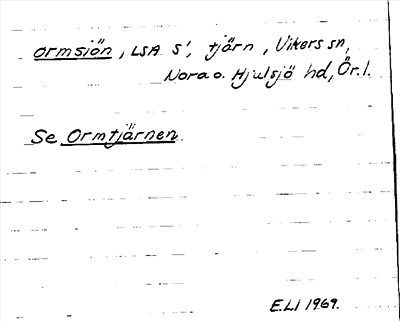 Ormsjön, LSA S', tjärn, Vikers sn,
Nora o. Hjulsjö hd, Ör. l.
Se Ormtjärnen.
E.LI 1969.